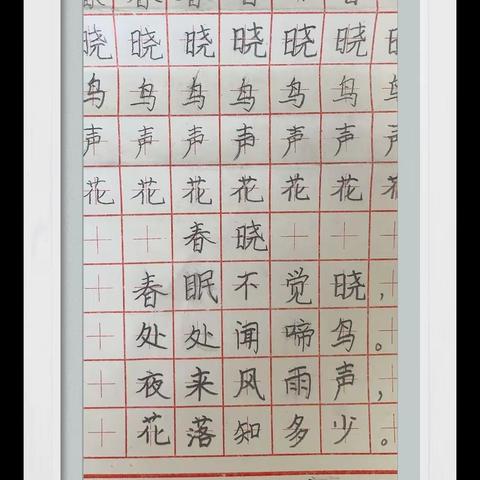 晓晓晓晓晓晓晓
鸟鸟鸟鸟鸟鸟鸟
声声声声声声声
花花花花花花花
春晓
春眠不觉晓，
处处闻啼鸟。
夜来风雨声，
花落知多少。